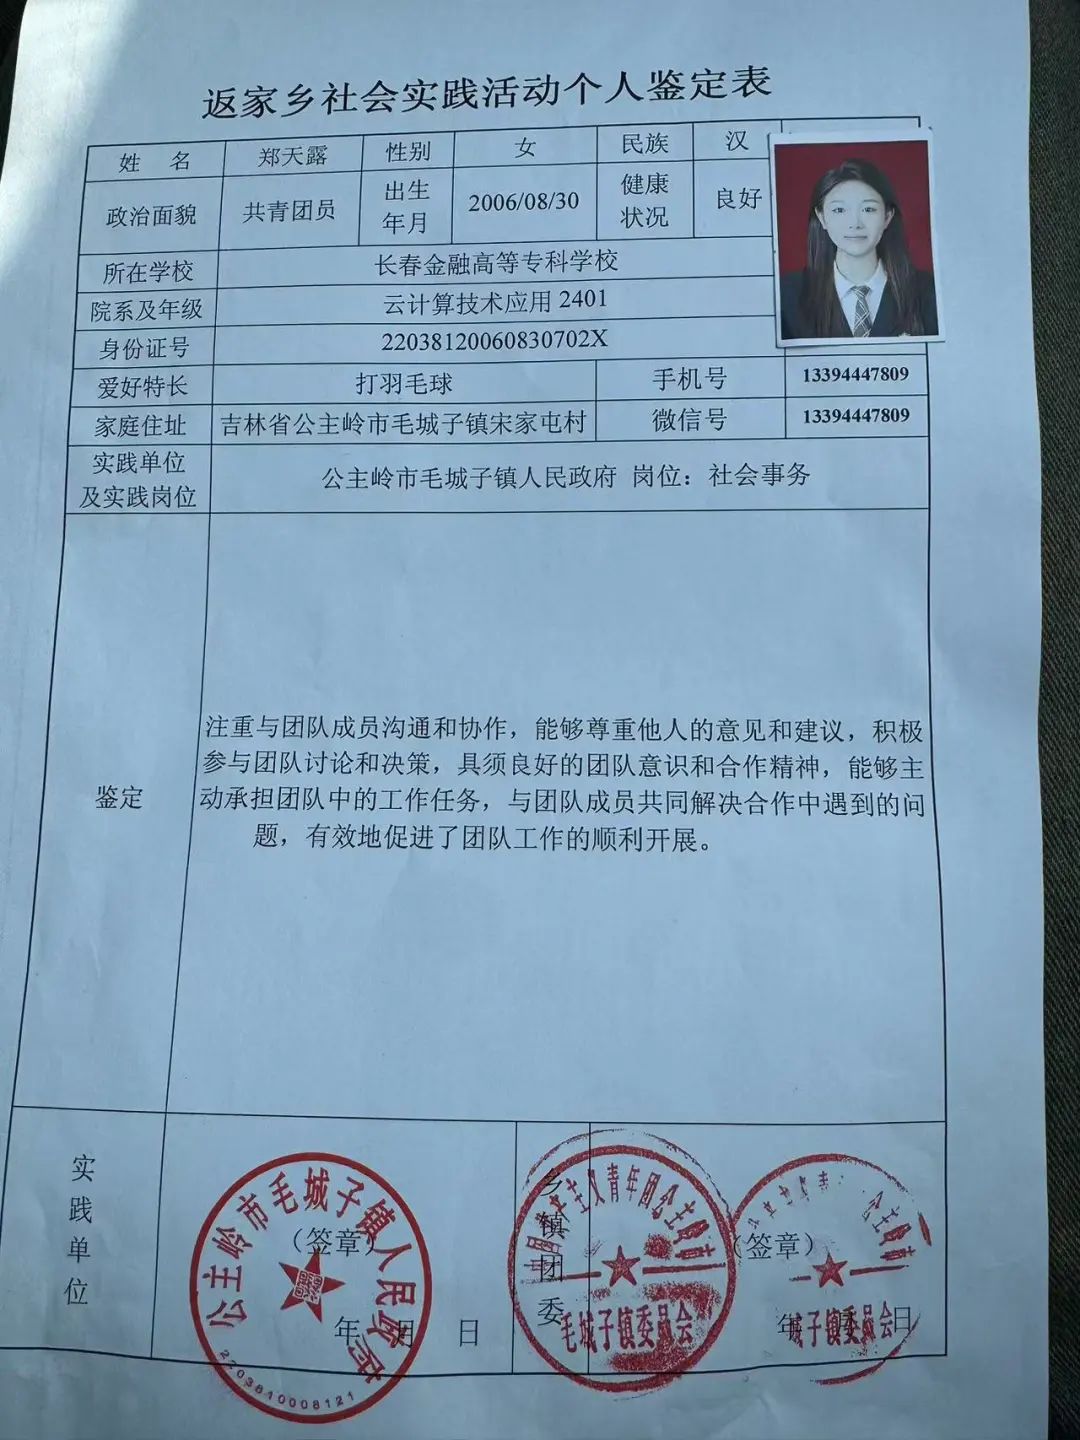 返家乡社会实践活动个人鉴定表
姓 名 郑天露 性别 女 民族 汉
政治面貌 共青团员 出生年月 2006/08/30 健康状况 良好
所在学校 长春金融高等专科学校
院系及年级 云计算技术应用 2401
身份证号 22038120060830702X
爱好特长 打羽毛球 手机号 13394447809
家庭住址 吉林省公主岭市毛城子镇宋家屯村 微信号 13394447809
实践单位
及实践岗位 公主岭市毛城子镇人民政府 岗位：社会事务
鉴定
注重与团队成员沟通和协作，能够尊重他人的意见和建议，积极
参与团队讨论和决策，具须良好的团队意识和合作精神，能够主
动承担团队中的工作任务，与团队成员共同解决合作中遇到的问
题，有效地促进了团队工作的顺利开展。
实践单位
（签章）
年 月 日
公主岭市毛城子镇人民政府
2203810008121
乡镇团委
（签章）
年 月 日
毛城子镇委员会
城子镇委员会